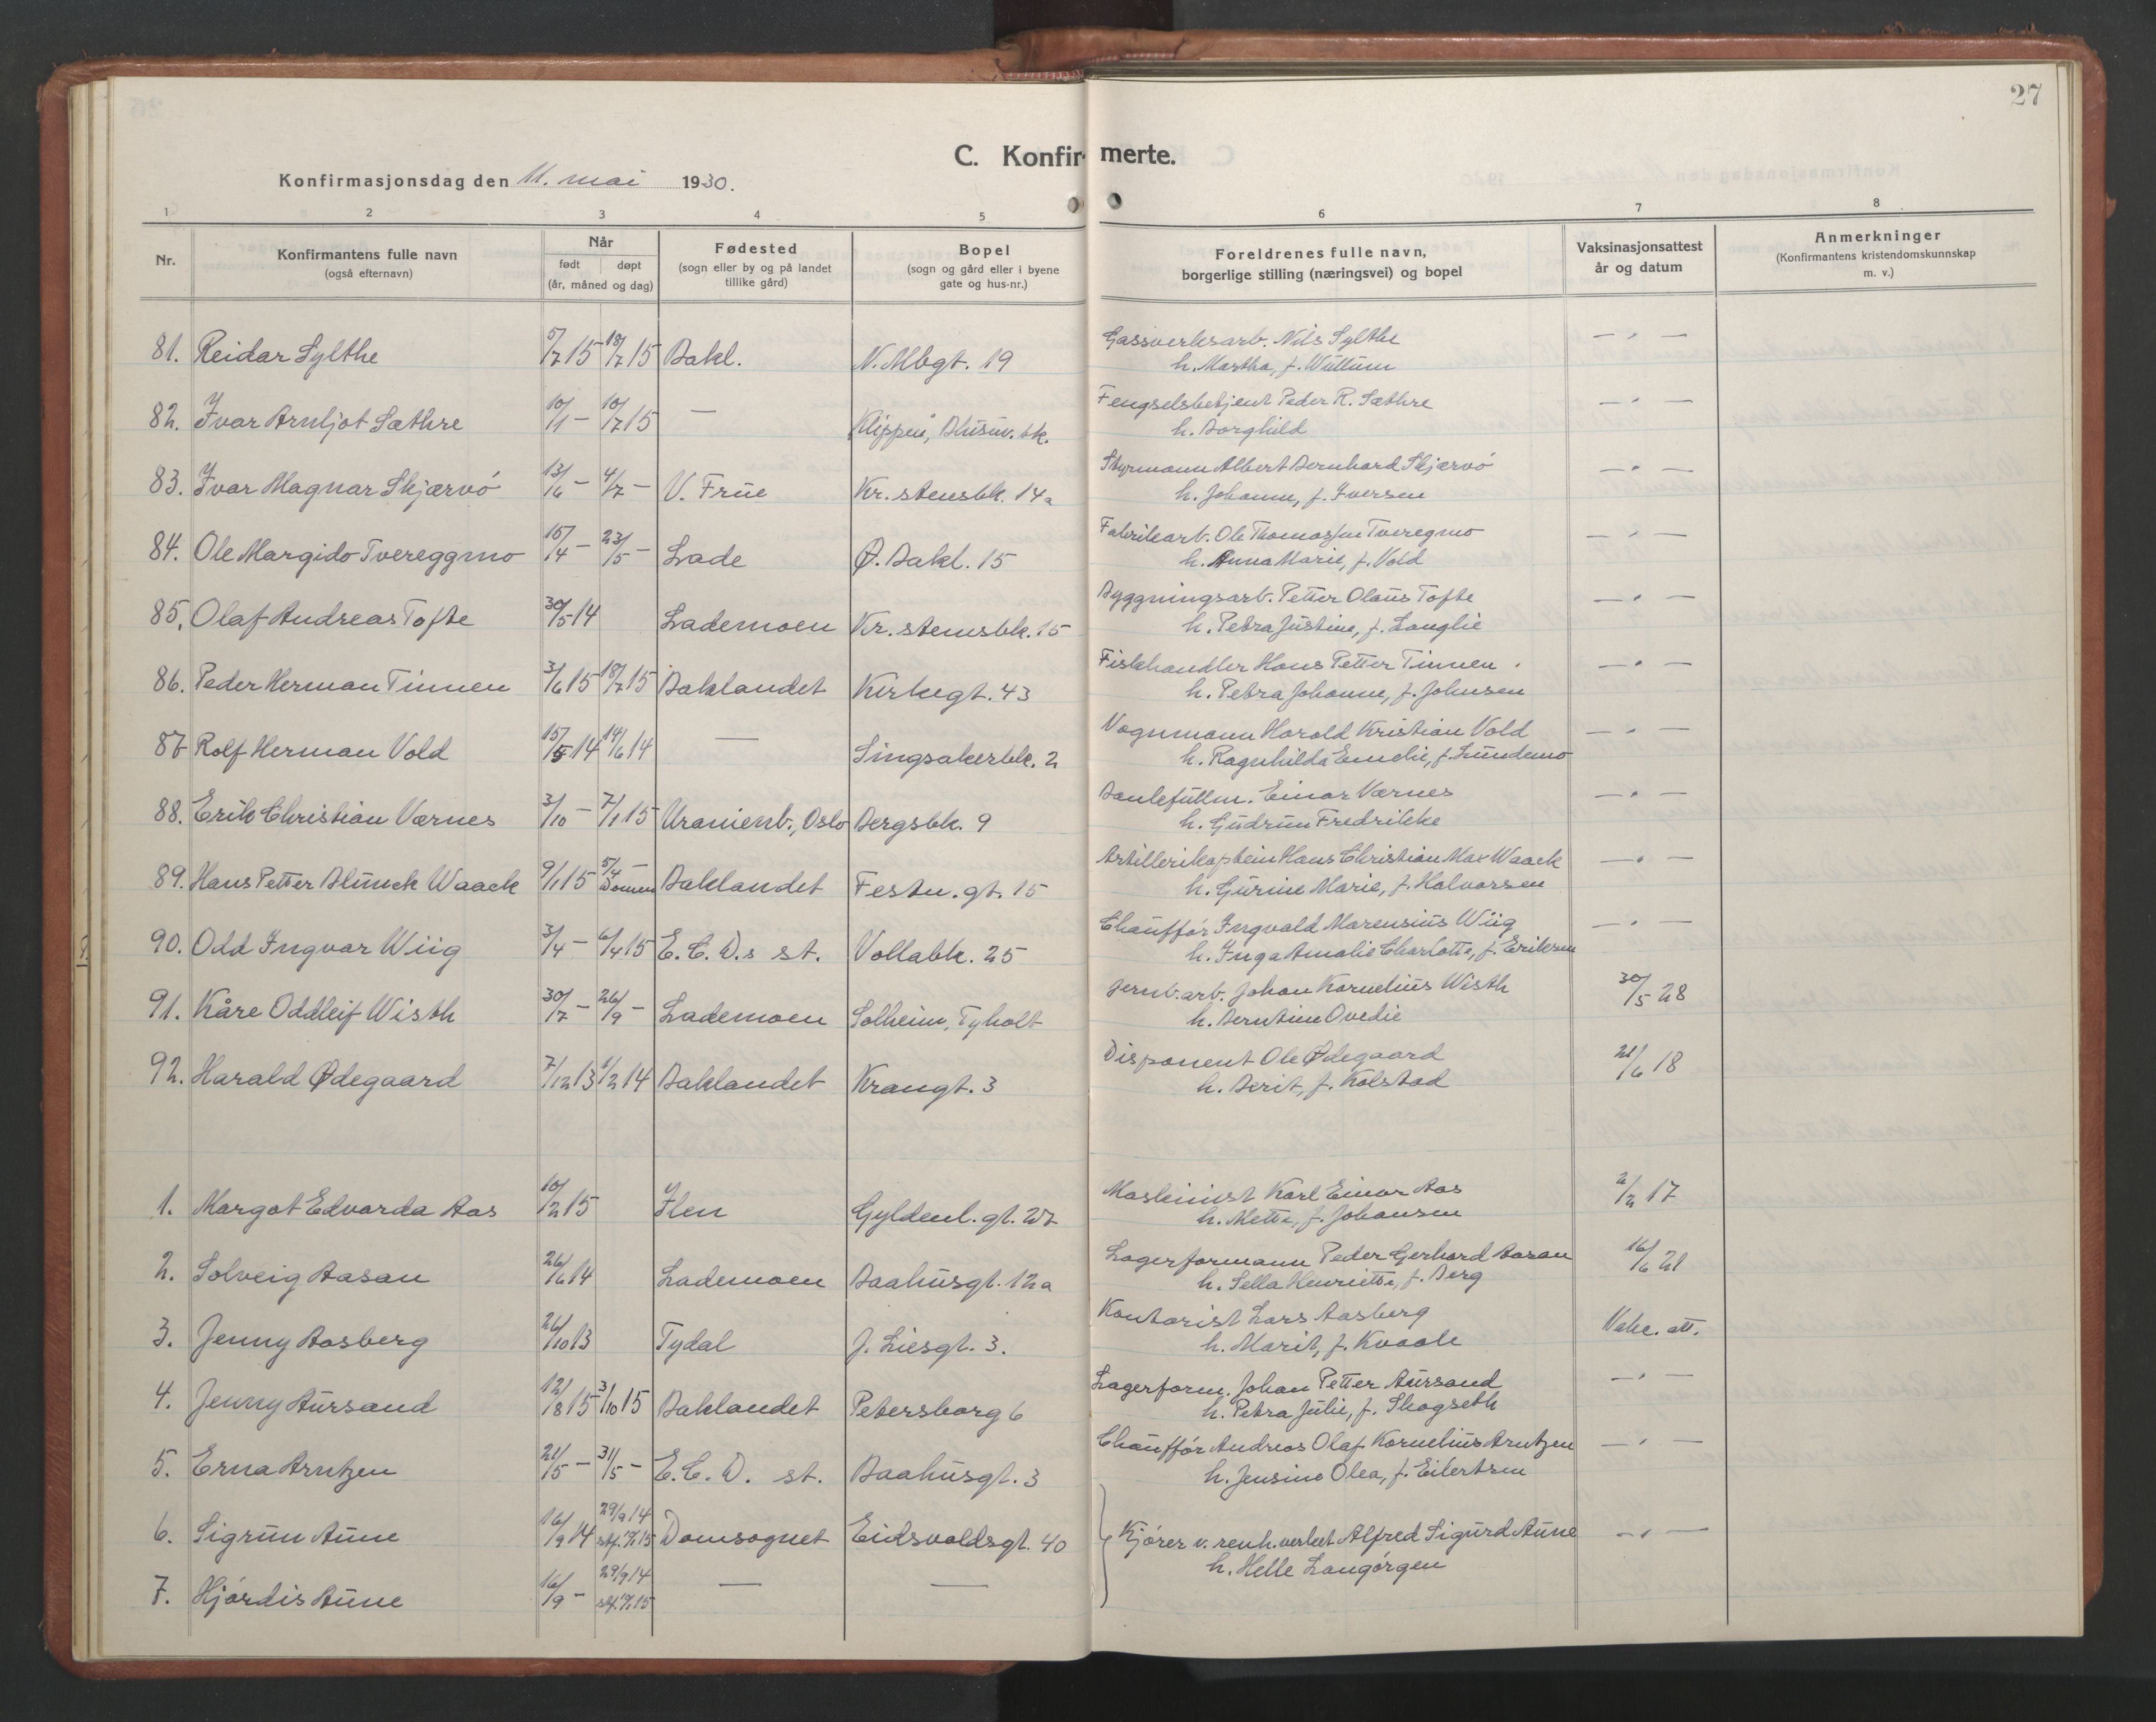 27
C. Konfirmerte.
Konfirmasjonsdag den 11. mai 1930.
1 2 3 4 5 6 7 8
Nr. Konfirmantens fulle navn (også efternavn) Når født døpt (år, måned og dag) Fødested (sogn eller by og på landet tillike gård) Bopel (sogn og gård eller i byene gate og hus-nr.) Foreldrenes fulle navn, borgerlige stilling (næringsvei) og bopel Vaksinasjonsattest år og datum Anmerkninger (Konfirmantens kristendomskunnskap m. v.)
81. Reidar Sylthe 5/7 15 18/7 15 Bakl. N. Mbgt. 19 Gassverksarb. Nils Sylthe — " —
h. Martha, f. Wullum
82. Ivar Arnljot Sæthre 10/1 — 10/7 15 — Klippen, Blusuv. bk. Fengselsbetjent Peder R. Sæthre — " —
h. Borghild
83. Ivar Magnar Skjærvö 13/6 — 4/7 — V. Frue Kr. stensbk. 14a Styrmann Albert Bernhard Skjærvö — " —
h. Johanne, f. Iversen
84. Ole Margido Tvereggmo 15/4 — 23/5 — Lade Ø. Bakl. 15 Fabrikarb. Ole Thomassen Tveregmo — " —
h. Anna Marie, f. Vold
85. Olaf Andreas Tofte 30/5 14 Lademoen Kr. stensbk. 15 Byggningsarb. Petter Olaus Tofte — " —
h. Petra Justine, f. Langlie
86. Peder Herman Tinnen 3/6 15 18/7 15 Baklandet Kirkegt. 43 Fiskehandler Hans Petter Tinnen — " —
h. Petra Johanne, f. Johnsen
87 Rolf Herman Vold 15/5 14 14/6 14 — Singsakerbk. 2 Vognmann Harald Kristian Vold — " —
h. Ragnhilda Emelie, f. Lundemo
88. Erik Christian Værnes 3/10 — 7/1 15 Uranienb., Oslo Bergsbk. 9 Bankfullm. Einar Værnes — " —
h. Gudrun Fredrikke
89. Hans Petter Blunck Waack 9/1 15 5/4 — Domen Baklandet Festn. gt. 15 Artillerikaptein Hans Christian Max Waack — " —
h. Gurine Marie, f. Halvorsen
90. Odd Ingvar Wiig 3/4 — 6/4 15 E. C. D.s st. Vollabk. 25 Chaufför Ingvald Marensius Wiig — " —
h. Inga Amalie Charlotte, f. Eriksen
91. Kåre Oddleif Wisth 30/7 — 26/9 — Lademoen Solheim, Tyholt Jernb. arb. Johan Kornelius Wisth 30/5 28
h. Berntine Ovedie
92. Harald Ødegaard 7/12 13 1/2 14 Baklandet Krangt. 3 Disponent Ole Ødegaard 21/6 18
h. Berit, f. Kolstad
1. Margot Edvarda Aas 10/2 15 Ilen Gyldenl. gt. Maskinist Karl Einar Aas 2/2 17
h. Mette, f. Johansen
2. Solveig Aasan 26/6 14 Lademoen Baahusgt. 12a Lagerformann Peder Gerhard Aasan 16/6 21
h. Sella Henriette, f. Berg
3. Jenny Aasberg 26/10 13 Tydal J. Liesgt. 3. Kontorist Lars Aasberg Vakc. att.
h. Marit, f. Kvaale
4. Jenny Aursand 12/8 15 3/10 15 Baklandet Petersborg 6 Lagerform. Johan Petter Aursand — " —
h. Petra Julie, f. Skogseth
5. Erna Arntzen 21/5 — 31/5 — E. C. D. st. Baahusgt. 3 Chaufför Andreas Olaf Kornelius Arntzen — " —
h. Jensine Olea, f. Eilertsen
6. Sigrun Aune 16/9 14 29/9 14 Domsognet Eidsvoldsgt. 40 Kjörer v. renh.verket Alfred Sigurd Aune — " —
h. Helle Langörgen
7. Hjördis Aune 16/9 — 29/9 14 — —